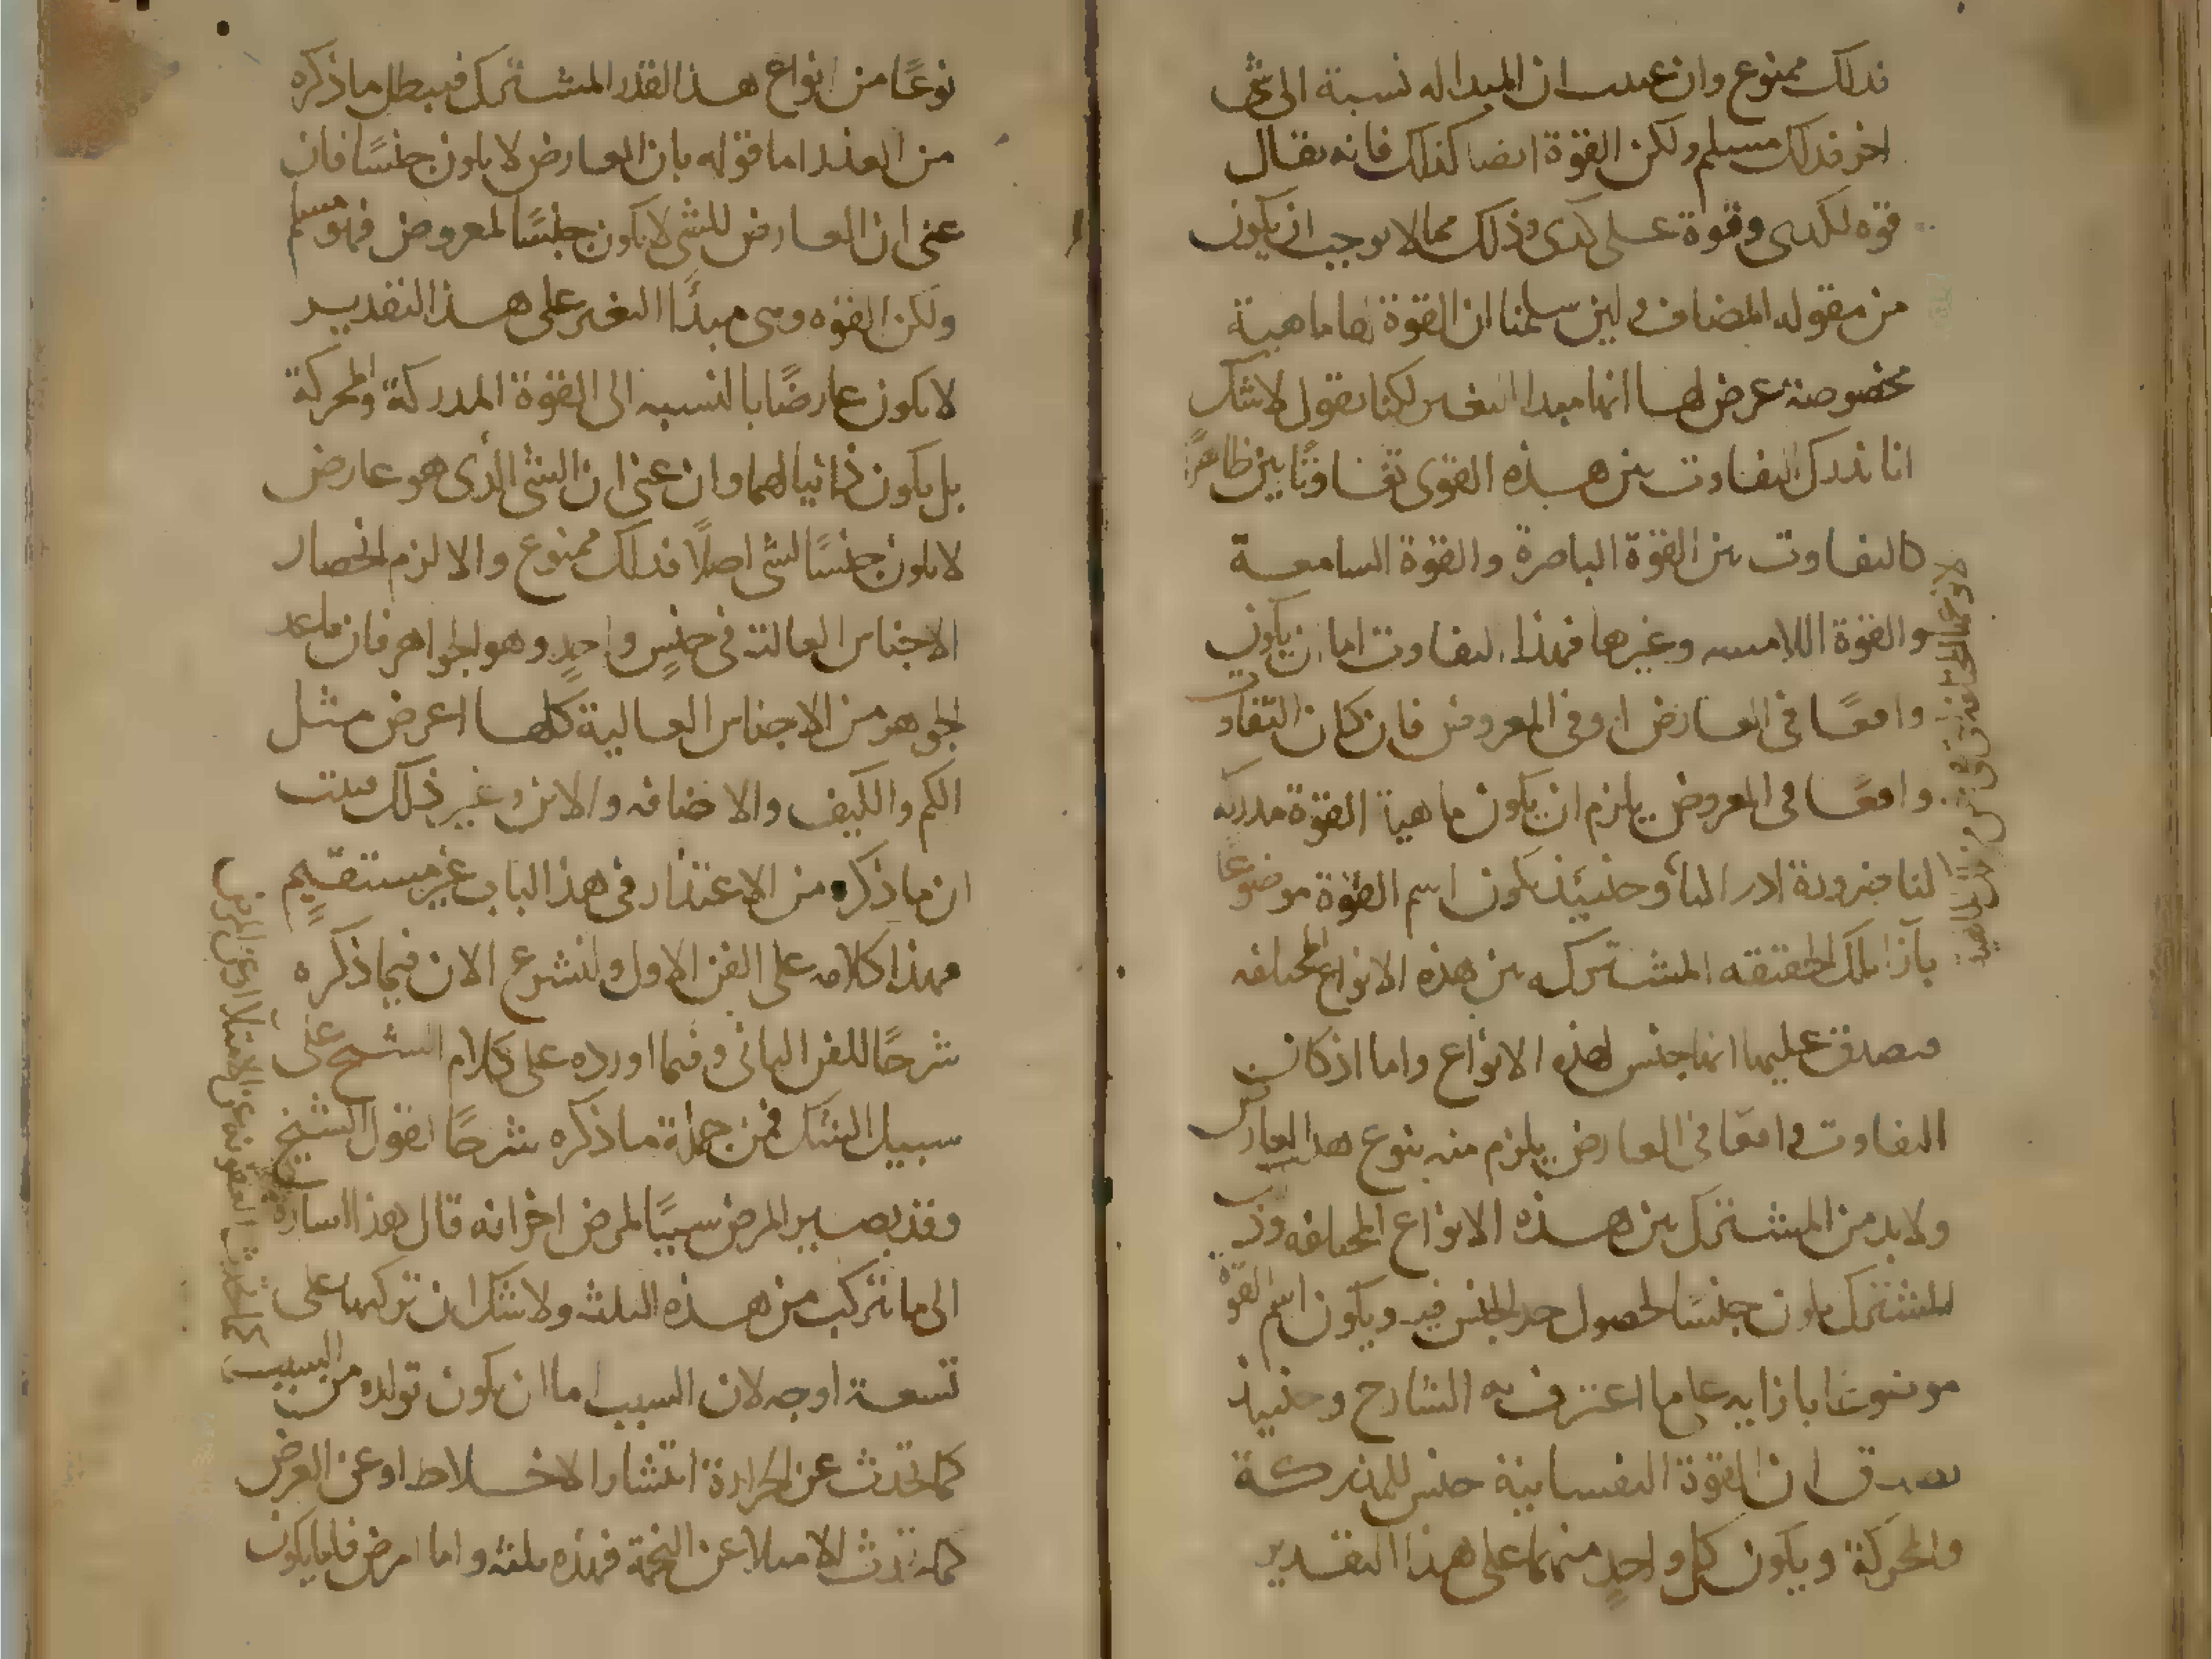 فذلك ممنوع وان عنيت ان المبدا له نسبة الى شى
اخر فذلك مسلم ولكن القوة ايضا كذلك فانه يقال
قوه لكذى وقوة على كذى وذلك مما لا يوجب ان يكون
من مقوله المضاف ولين سلمنا ان القوة لها ماهية
مخصوصة عرض لها انها مبدا التغير لكنا نقول لا شك
انا ندرك التفاوت بين هذه القوى تفاوتًا بين ظاهرًا
كالتفاوت بين القوة الباصرة والقوة السامعة
والقوة اللامسه وغيرها فهذا التفاوت اما ان يكون
واقعًا فى العارض او فى المعروض فان كان التفاوت
واقعًا فى المعروض يلزم ان يكون ماهية القوة مدركه
لنا ضرورة ادراكنا وحنيئذ يكون اسم القوة موضوعًا
بآزا تلك الحقيقه المشتركه بين هذه الانواع المختلفه
فيصدق عليها انها جنس لهذه الانواع واما اذ كان
التفاوت واقعًا فى العارض يلزم منه تنوع هذا العارض
ولا بد من المشترك بين هذه الانواع المختلفه وذلك
المشترك يكون جنسًا لحصول حد الجنس فيه ويكون اسم القوة
موضوعًا بازايه على ما اعترف به الشارح وحنيئذ
يصدق ان القوة النفسانية جنس للمدركة
والمحركة ويكون كل واحدٍ منهما على هذا التقدير
نوعًا من انواع هذا القدر المشترك فيبطل ما ذكره
من العذر اما قوله بان العارض لا يكون جنسًا فان
عنى ان العارض للشى لا يكون جنسًا لمعروض فهو مسلم
ولكن القوه وهى مبدأ التغير على هذا التقدير
لا يكون عارضًا بالنسبه الى القوة المدركة والمحركة
بل يكون ذاتيا لهما وان عنى ان الشى الذى هو عارض
لا يكون جنسًا لشى اصلًا فذلك ممنوع والا لزم انحصار
الاجناس العالية فى جنسٍ واحدٍ وهو الجواهر فان ما عد
الجوهر من الاجناس العالية كلها اعرض مثل
الكم والكيف والاضافه والاين وغير ذلك فبت
ان ما ذكره من الاعتذار فى هذا الباب غير مستقيمٍ
فهذا كلامه على الفن الاول ولنشرع الان فيما ذكره
شرحًا للفن الثانى وفيما اورده على كلام الشيخ على
سبيل الشك فمن جملة ما ذكره شرحًا لقول الشيخ
وقد يصير المرض سببًا لمرض اخر انه قال هذا اشارة
الى ما تركب من هذه الثلث ولا شك ان تركبها على
تسعة اوجه لان السبب اما ان يكون تولده من السبب
كما تحدث عن الحرارة انتشار الاخلاط او عن العرض
كما تحدث الامتلا عن التخمة فهذه ثلثه واما المرض فاما يكون